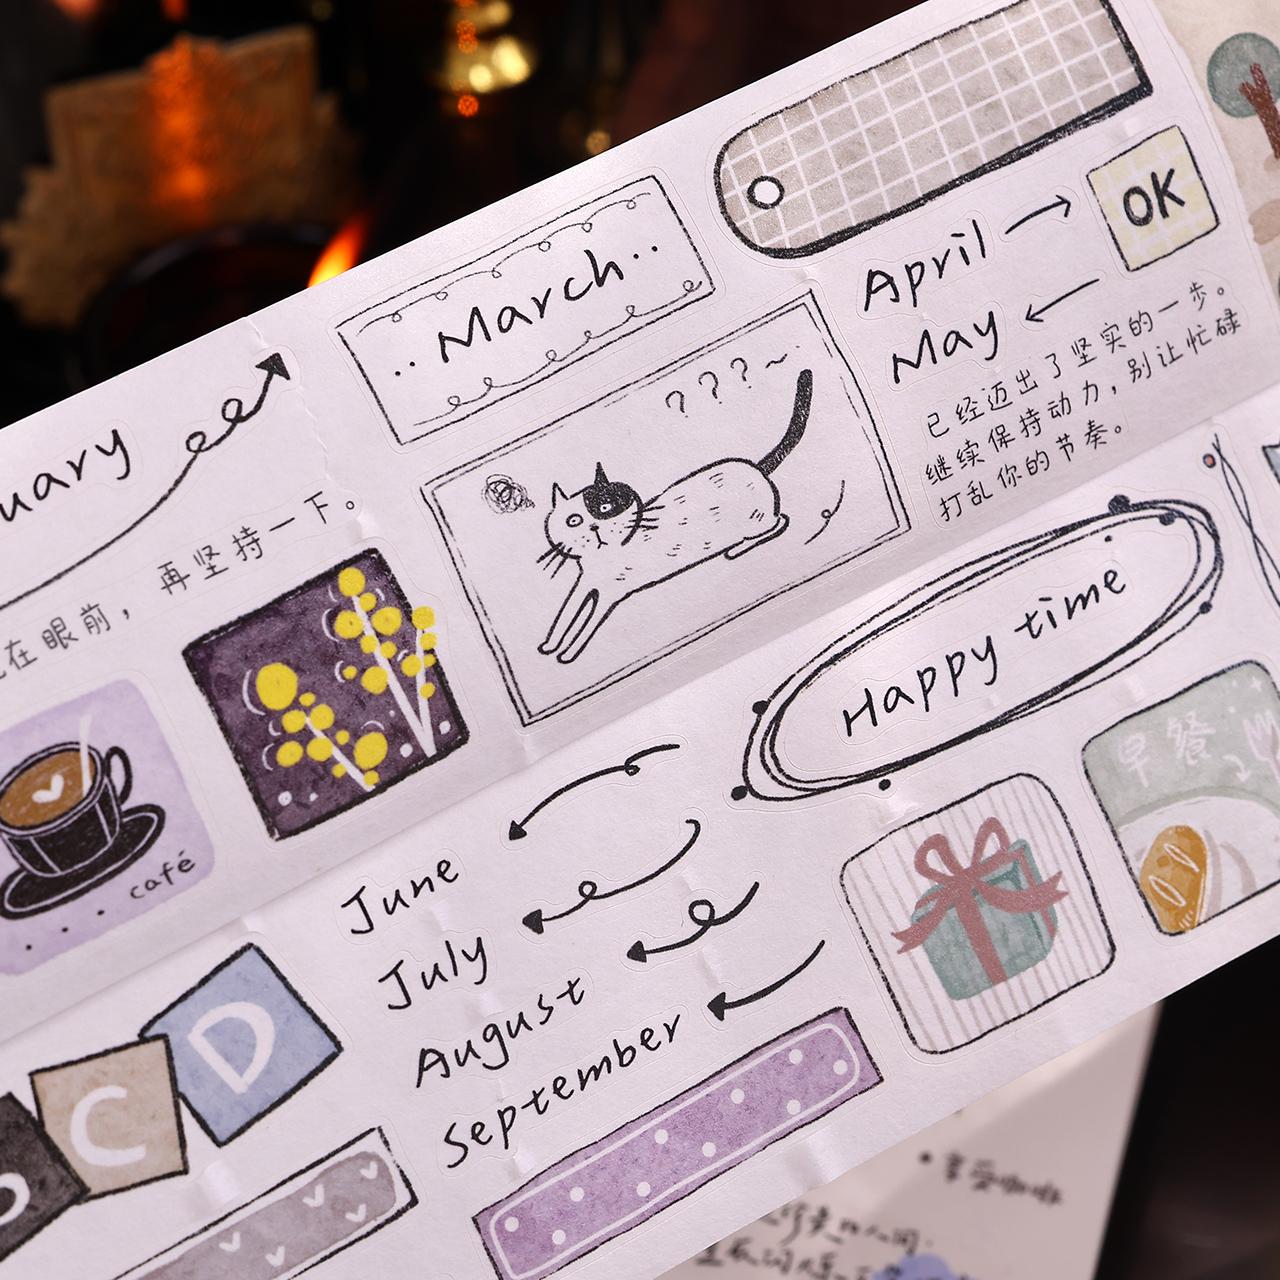 uary
在眼前，再坚持一下。
March
OK
April
May
已经迈出了坚实的一步。
继续保持动力，别让忙碌
打乱你的节奏。
???~
café
Happy time
早餐
June
July
August
September
C
D
•享受咖啡